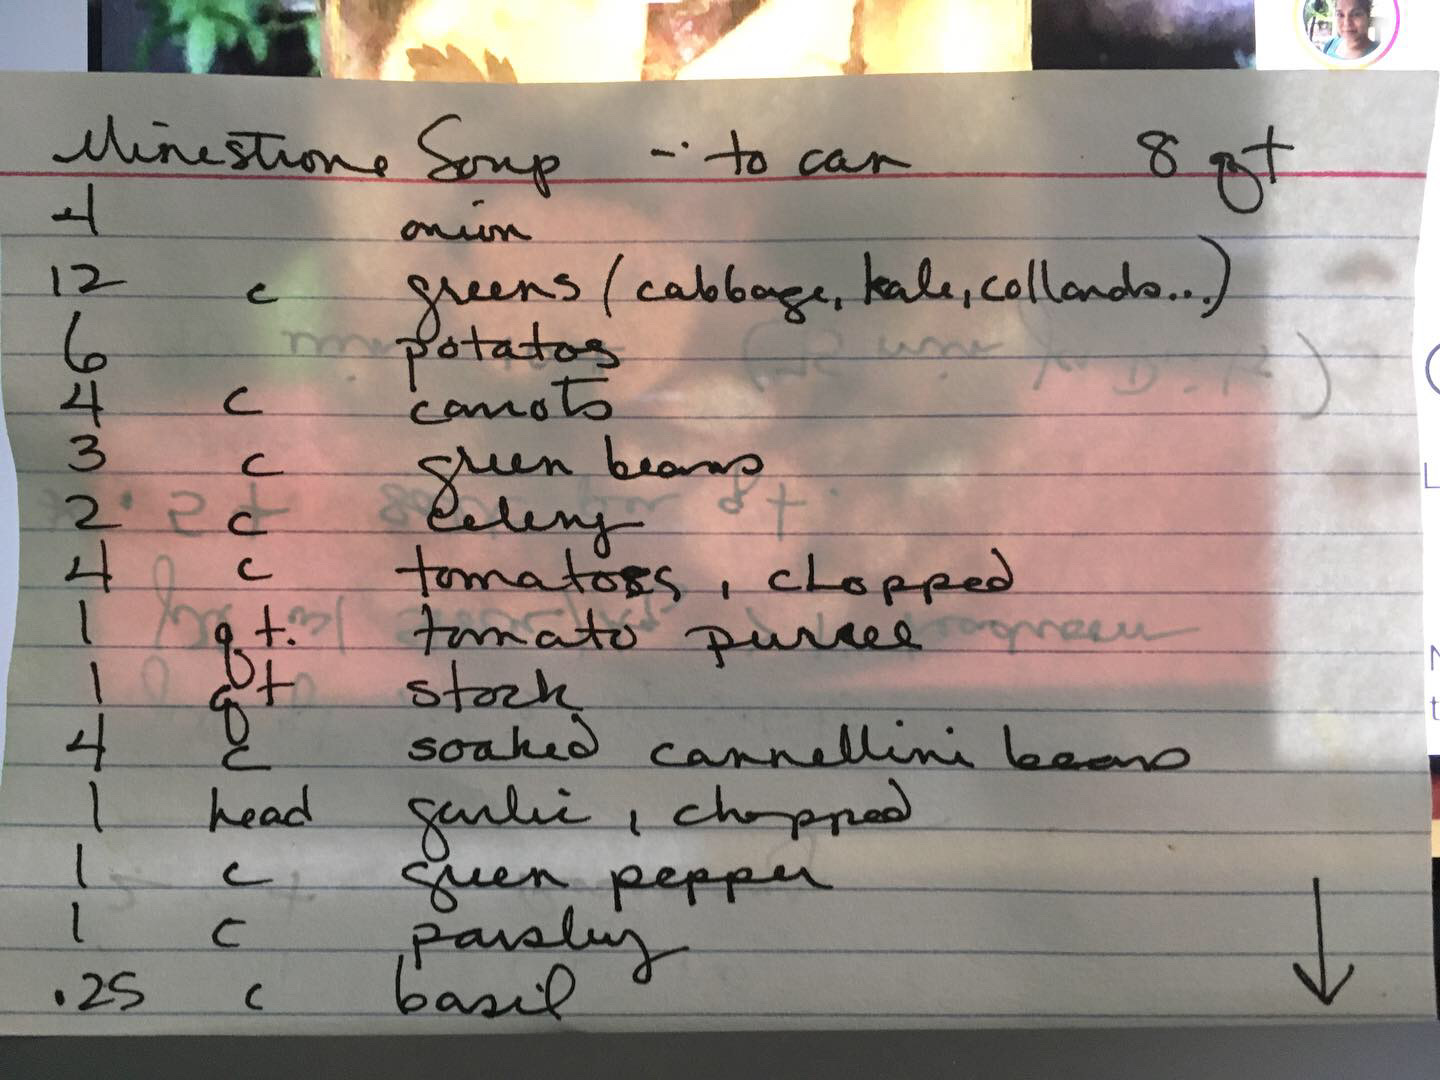 Minestrone Soup - to can 8 qt
4 onion
12 c greens (cabbage, kale, collards...)
6 potatos
4 c carrots
3 c green beans
2 c celery
4 c tomatoes, chopped
1 qt. tomato puree
1 qt stock
4 c soaked cannellini beans
1 head garlic, chopped
1 c green pepper
1 c parsley
.25 c basil